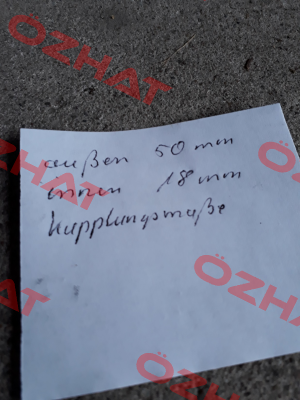 außen 50 mm
innen 18 mm
Kupplungsmaße
ÖZHAT
ÖZHAT
ÖZHAT
ÖZHAT
ÖZHAT
ÖZHAT